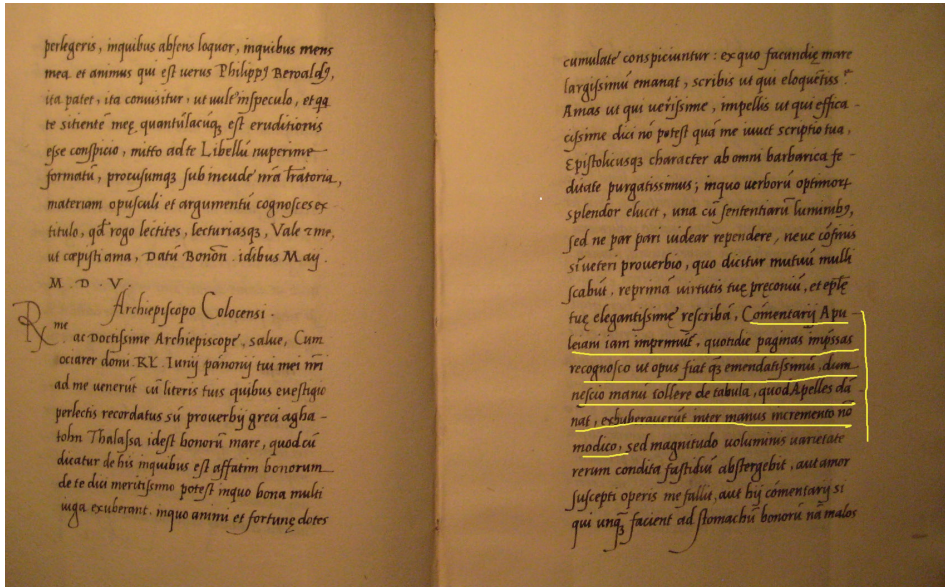 perlegeris, inquibus absens loquor, inquibus mens
mea et animus qui est uerus Philippꝰ Beroaldꝰ,
ita patet, ita conuisitur, ut uult' inspeculo, et
te sitiente meę quantulacūqꝫ est eruditionis
esse conspicio, mitto ad te Libellū nuperime
formatū, procusumqꝫ sub incude nr̄a
materiam opusculi et argumentū cognosces ex
titulo, qd̄ rogo lectites, lecturiasqꝫ, Vale me,
ut cœpisti ama, Datū Bonōn. idibus Maij
M. D. V.
Archiepiscopo Colocensi.
R me ac Doctissime Archiepiscope, salue, Cum
ociarer domi. Iunij panonij tui mei nr̄i
ad me uenerūt cū literis tuis quibus euestigio
perlectis recordatus sū prouerbij greci agha-
tohn Thalassa idest bonorū mare, quod cū
dicatur de his inquibus est affatim bonorum
de te dici meritissimo potest inquo bona multi
iuga exuberant. inquo animi et fortunę dotes
cumulate conspiciuntur: ex quo facundię mare
largissimū emanat, scribis ut qui
Amas ut qui uerissime, impellis ut qui effica-
cissime dici nō potest quā me iuuet scriptio tua,
Epistolicusqꝫ character ab omni barbarica fe-
ditate purgatissimus; inquo uerborū
splendor elucet, una cū sententiarū luminibꝰ,
sed ne par pari uidear rependere, neue
si ueteri prouerbio, quo dicitur mutuū muli
scabūt. reprimā uirtutis tuę pręconiū, et
tuę elegantissimę rescribā, Cōmentarij Apu-
leiani iam imprimūt̄, quotidie paginas
recognosco ut opus fiat qꝫ emendatissimū, dum
nescio manū tollere de tabula, quod Apelles dā
nat, exuberauerūt inter manus incremento nō
modico, sed magnitudo uoluminis uarietate
rerum condita fastidiū abstergebit, aut amor
suscepti operis me fallit, aut hij cōmentarij si
qui unqꝫ facient ad stomachū bonorū nā malos